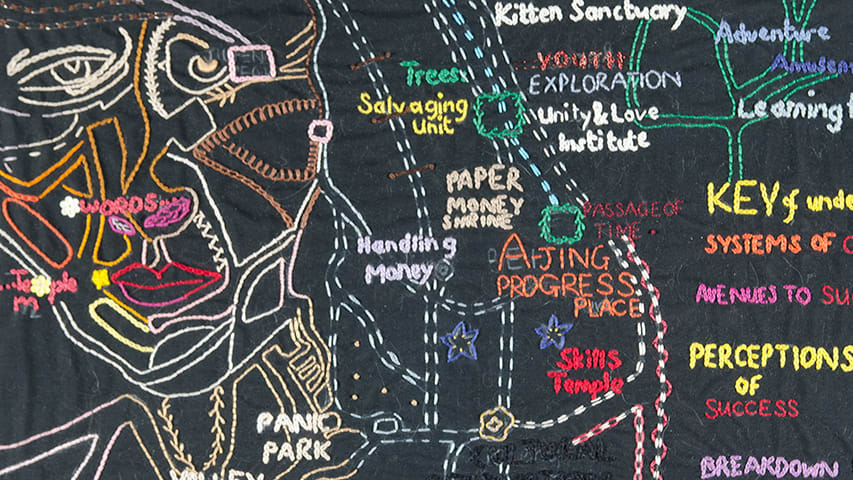 Kitten Sanctuary
Adventure
Trees
YOUTH
EXPLORATION
Salvaging
Unit
Unity & Love
Institute
Learning
PAPER
MONEY
SHRINE
KEY of unde
WORDS
PASSAGE OF
TIME
Handling
Money
SYSTEMS OF
AiJING
PROGRESS
PLACE
Temple
AVENUES TO SU
Skills
Temple
PERCEPTIONS
OF
SUCCESS
PANIC
PARK
VALLEY
BREAKDOWN